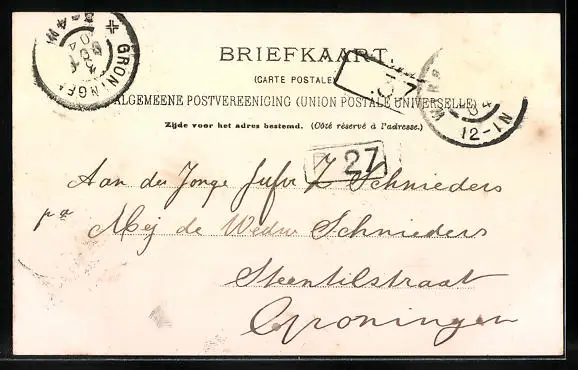 BRIEFKAART
(CARTE POSTALE)
ALGEMEENE POSTVEREENIGING (UNION POSTALE UNIVERSELLE)
Zijde voor het adres bestemd. (Côté réservé à l'adresse.)
GRONINGEN
12-1N
27
Aan de Jonge Jufvr Z Schnieders
pa Mej de Wedw Schnieders
Steentilstraat
Groningen